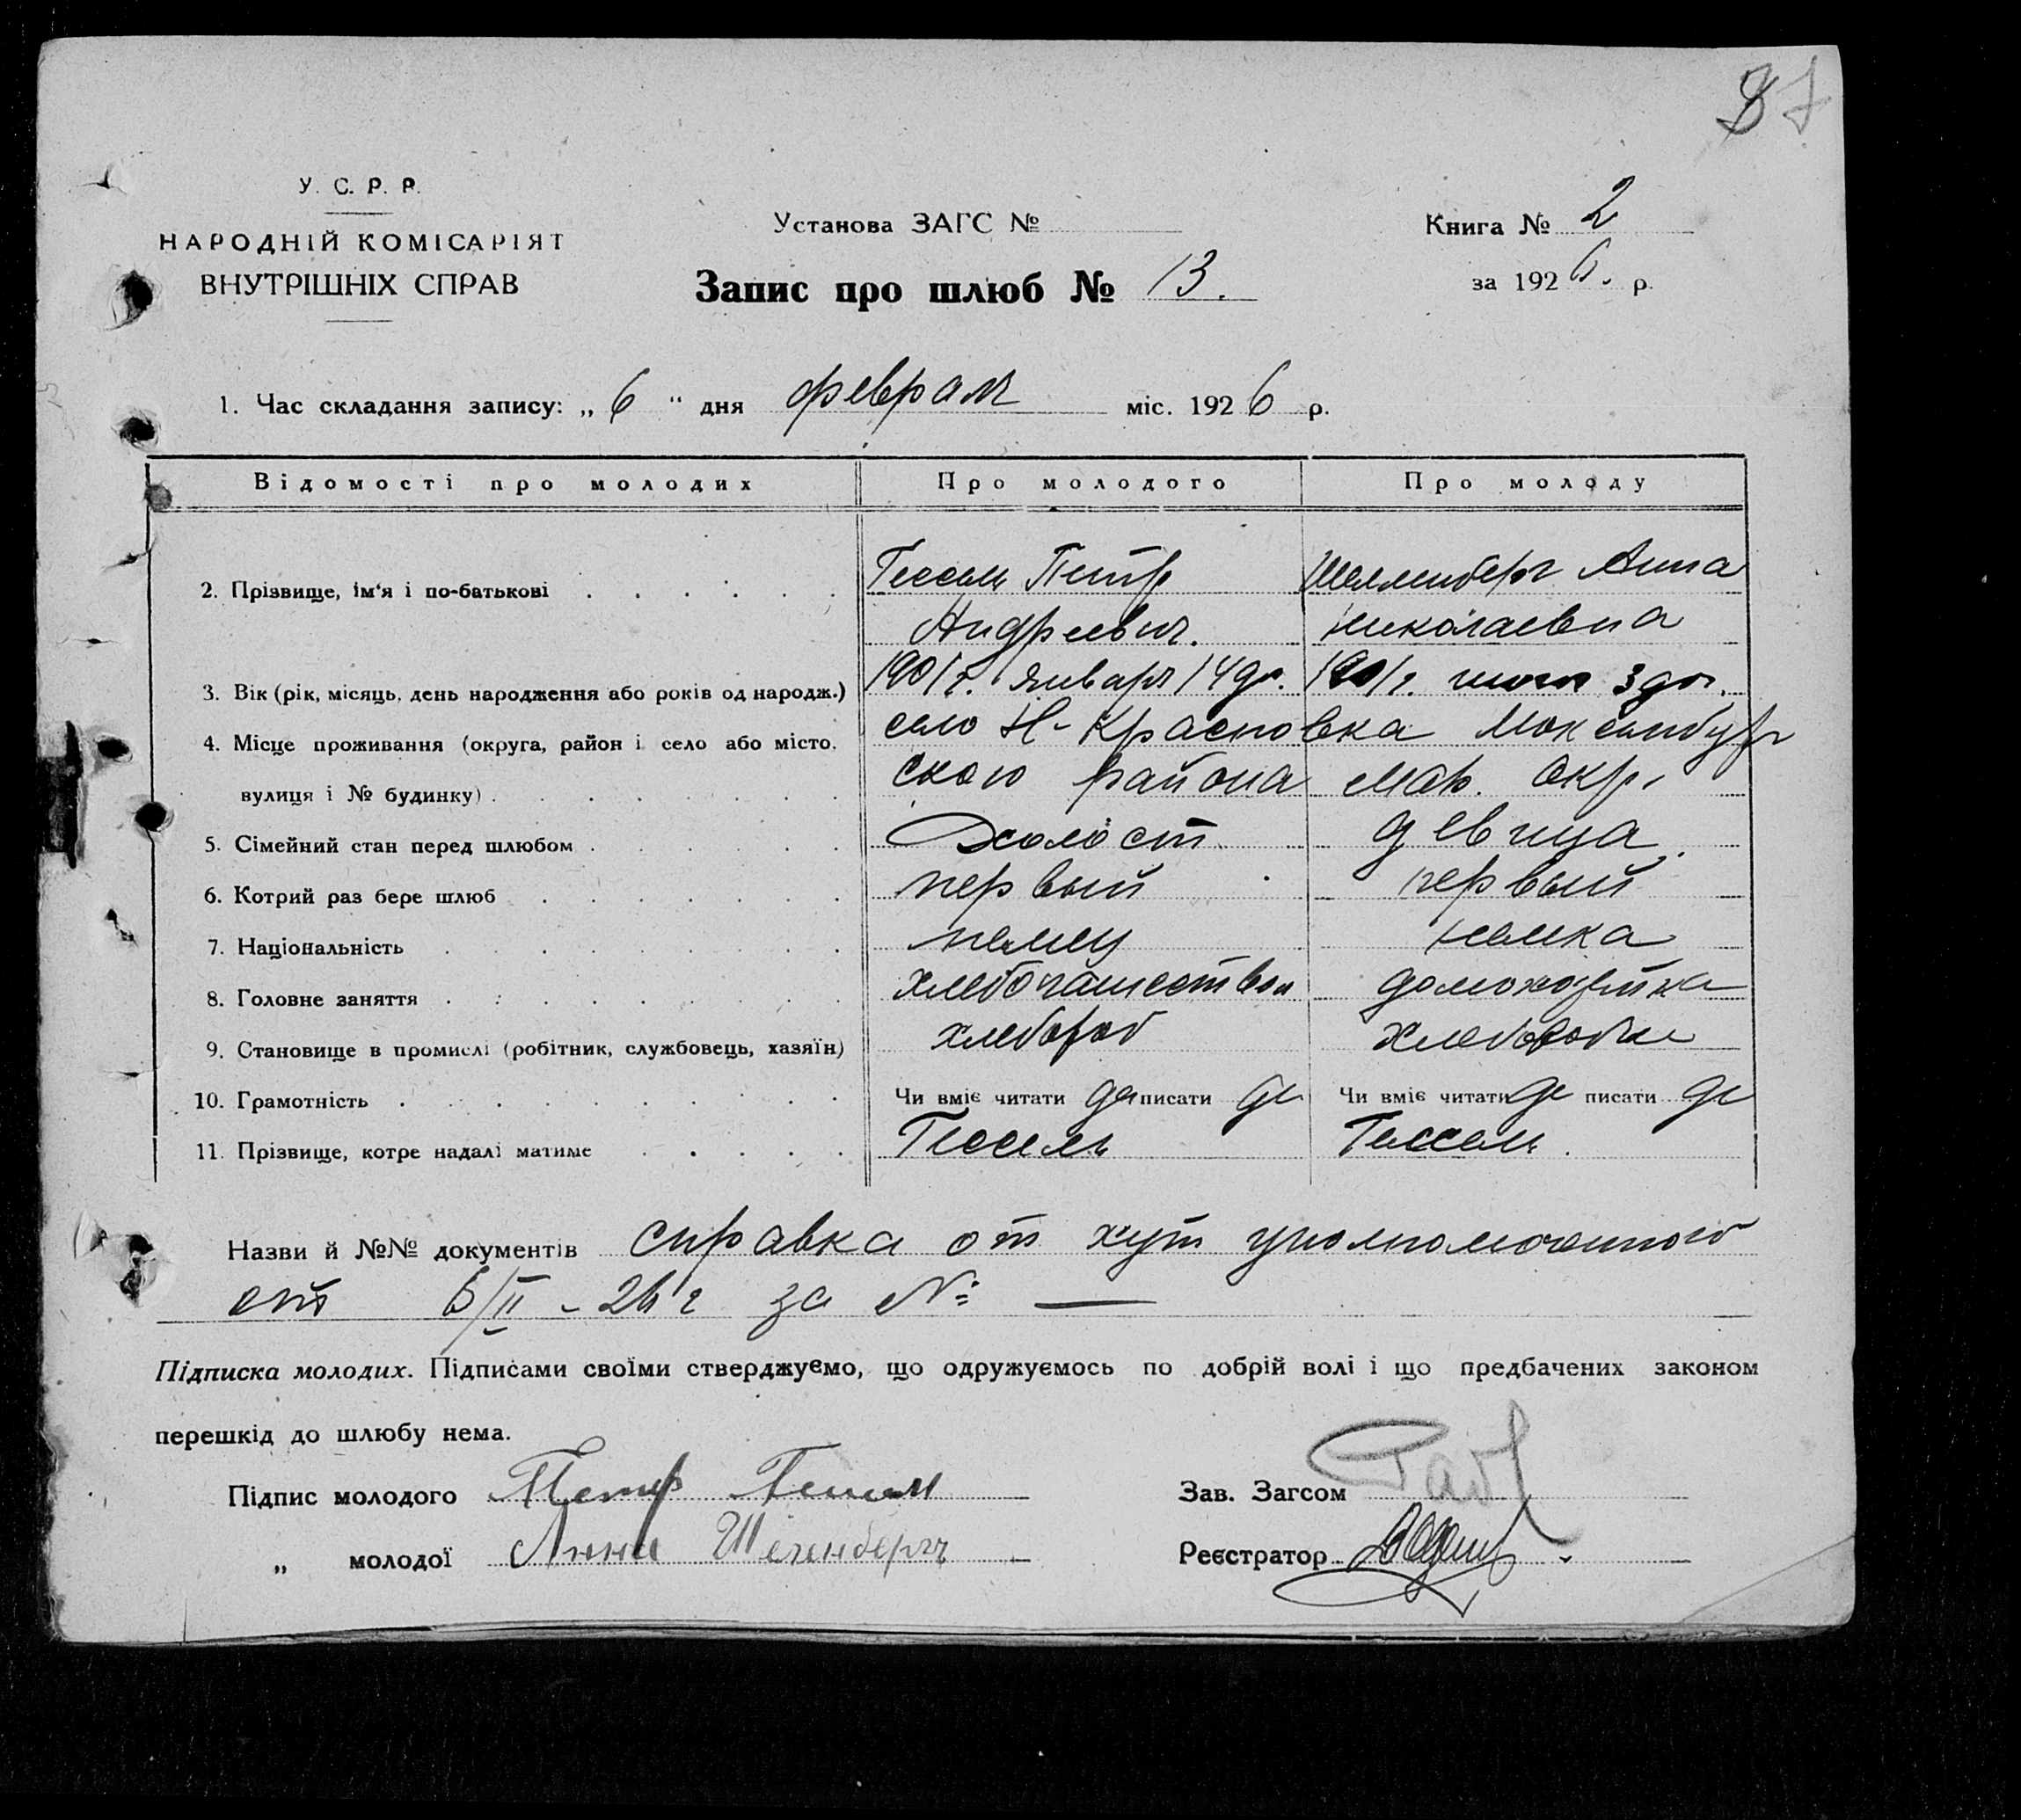 87
У. С. Р. Р.
НАРОДНІЙ КОМІСАРІЯТ
ВНУТРІШНІХ СПРАВ
Установа ЗАГС №
Запис про шлюб № 13.
Книга № 2
за 1926. р.
1. Час складання запису: „ 6 “ дня февраля міс. 1926 р.
Відомості про молодих Про молодого Про молоду
2. Прізвище, ім'я і по-батькові Гессель Петр Шелленберг Анна
Андреевич. Николаевна
3. Вік (рік, місяць, день народження або років од народж.) 1901 г. января 14 дн. 1901 г. 3 дн.
4. Місце проживання (округа, район і село або місто, село Н-Красновка Люксембург
вулиця і № будинку) ского района Мар. Окр.
5. Сімейний стан перед шлюбом Холост девица.
6. Котрий раз бере шлюб первый первый
7. Національність немец немка
8. Головне заняття хлебопашеством домохозяйка
9. Становище в промислі (робітник, службовець, хазяїн) хлебороб хлеборобка
10. Грамотність Чи вміє читати да писати да Чи вміє читати да писати да
11. Прізвище, котре надалі матиме Гессель Гессель.
Назви й №№ документів справка от хут уполномоченного
от 6/II - 26 г за № —
Підписка молодих. Підписами своїми стверджуємо, що одружуємось по добрій волі і що предбачених законом
перешкід до шлюбу нема.
Підпис молодого Петр Гессель
„ молодої Анна Шеленберг
Зав. Загсом
Реєстратор